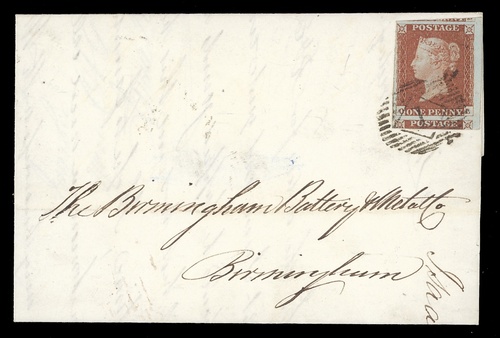 POSTAGE
ONE PENNY
POSTAGE
The Birmingham Battery & Metal Co
Birmingham